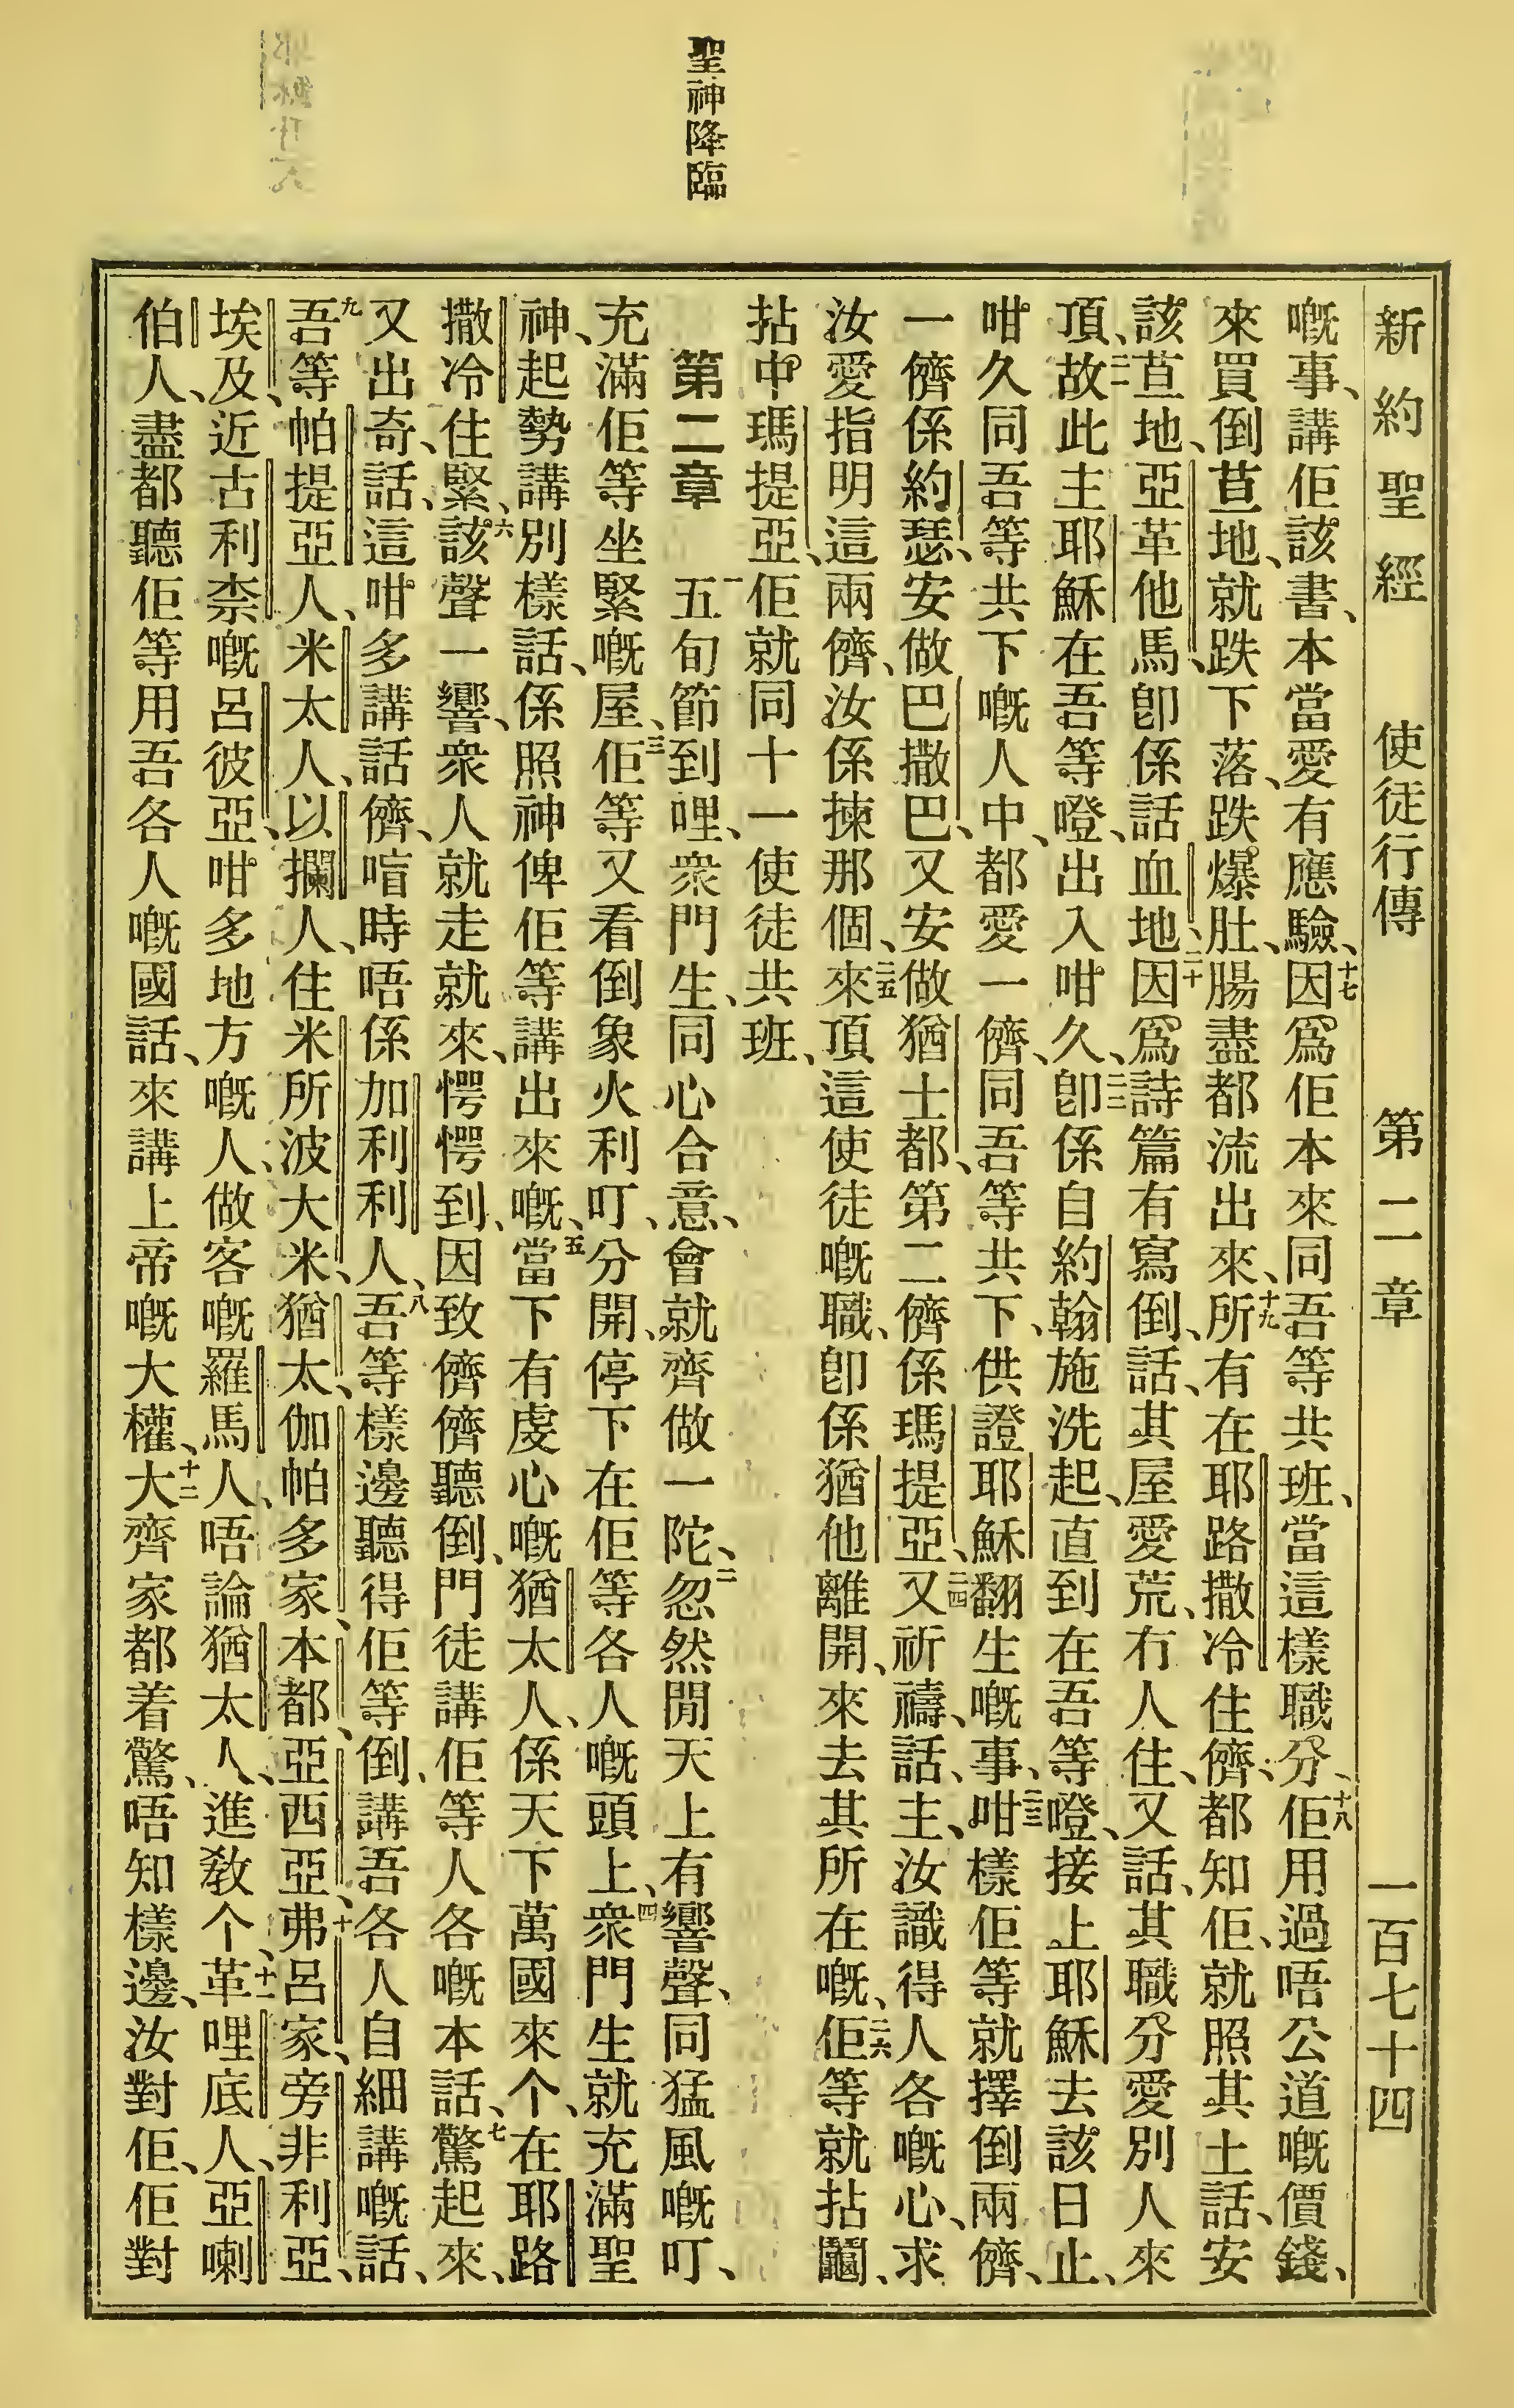 聖神降臨
新約聖經 使徒行傳 第二章 一百七十四
嘅事、講佢該書、本當愛有應驗、十七因爲佢本來同吾等共班、當這樣職分、十八佢用過唔公道嘅價錢、
來買倒苴地、就跌下落、跌爆肚、腸盡都流出來、十九所有在耶路撒冷住儕、都知佢、就照其土話、安
該苴地、亞革他馬、卽係話血地、二十因爲詩篇有寫倒、話、其屋愛荒、冇人住、又話、其職分愛別人來
頂、二一故此主耶穌在吾等噔、出入咁久、二二卽係自約翰施洗起、直到在吾等噔、接上耶穌去該日止、
咁久同吾等共下嘅人中、都愛一儕、同吾等共下、供證耶穌翻生嘅事、二三咁樣佢等就擇倒兩儕、
一儕係約瑟、安做巴撒巴、又安做猶士都、第二儕係瑪提亞、二四又祈禱、話、主、汝識得人各嘅心、求
汝愛指明這兩儕、汝係揀那個、二五來頂這使徒嘅職、卽係猶他離開、來去其所在嘅、二六佢等就拈鬮、
拈中瑪提亞、佢就同十一使徒共班、
第二章 一五旬節到哩、衆門生、同心合意、會就齊做一陀、二忽然閒天上有響聲、同猛風嘅叮、
充滿佢等坐緊嘅屋、三佢等又看倒象火利叮、分開、停下在佢等各人嘅頭上、四衆門生就充滿聖
神、起勢講別樣話、係照神俾佢等講出來嘅、五當下有虔心嘅猶太人、係天下萬國來个、在耶路
撒冷住緊、六該聲一響、衆人就走就來、愕愕到、因致儕儕聽倒、門徒講佢等人各嘅本話、七驚起來、
又出奇、話、這咁多講話儕、㫾時唔係加利利人、八吾等樣邊聽得佢等倒、講吾各人自細講嘅話、
九吾等帕提亞人、米太人、以攔人、住米所波大米、猶太、伽帕多家、本都、亞西亞、十弗呂家、旁非利亞、
埃及、近古利柰嘅呂彼亞、咁多地方嘅人、做客嘅羅馬人、唔論猶太人、進教个、十一革哩底人、亞喇
伯人、盡都聽佢等用吾各人嘅國話、來講上帝嘅大權、十二大齊家都着驚、唔知樣邊、汝對佢、佢對